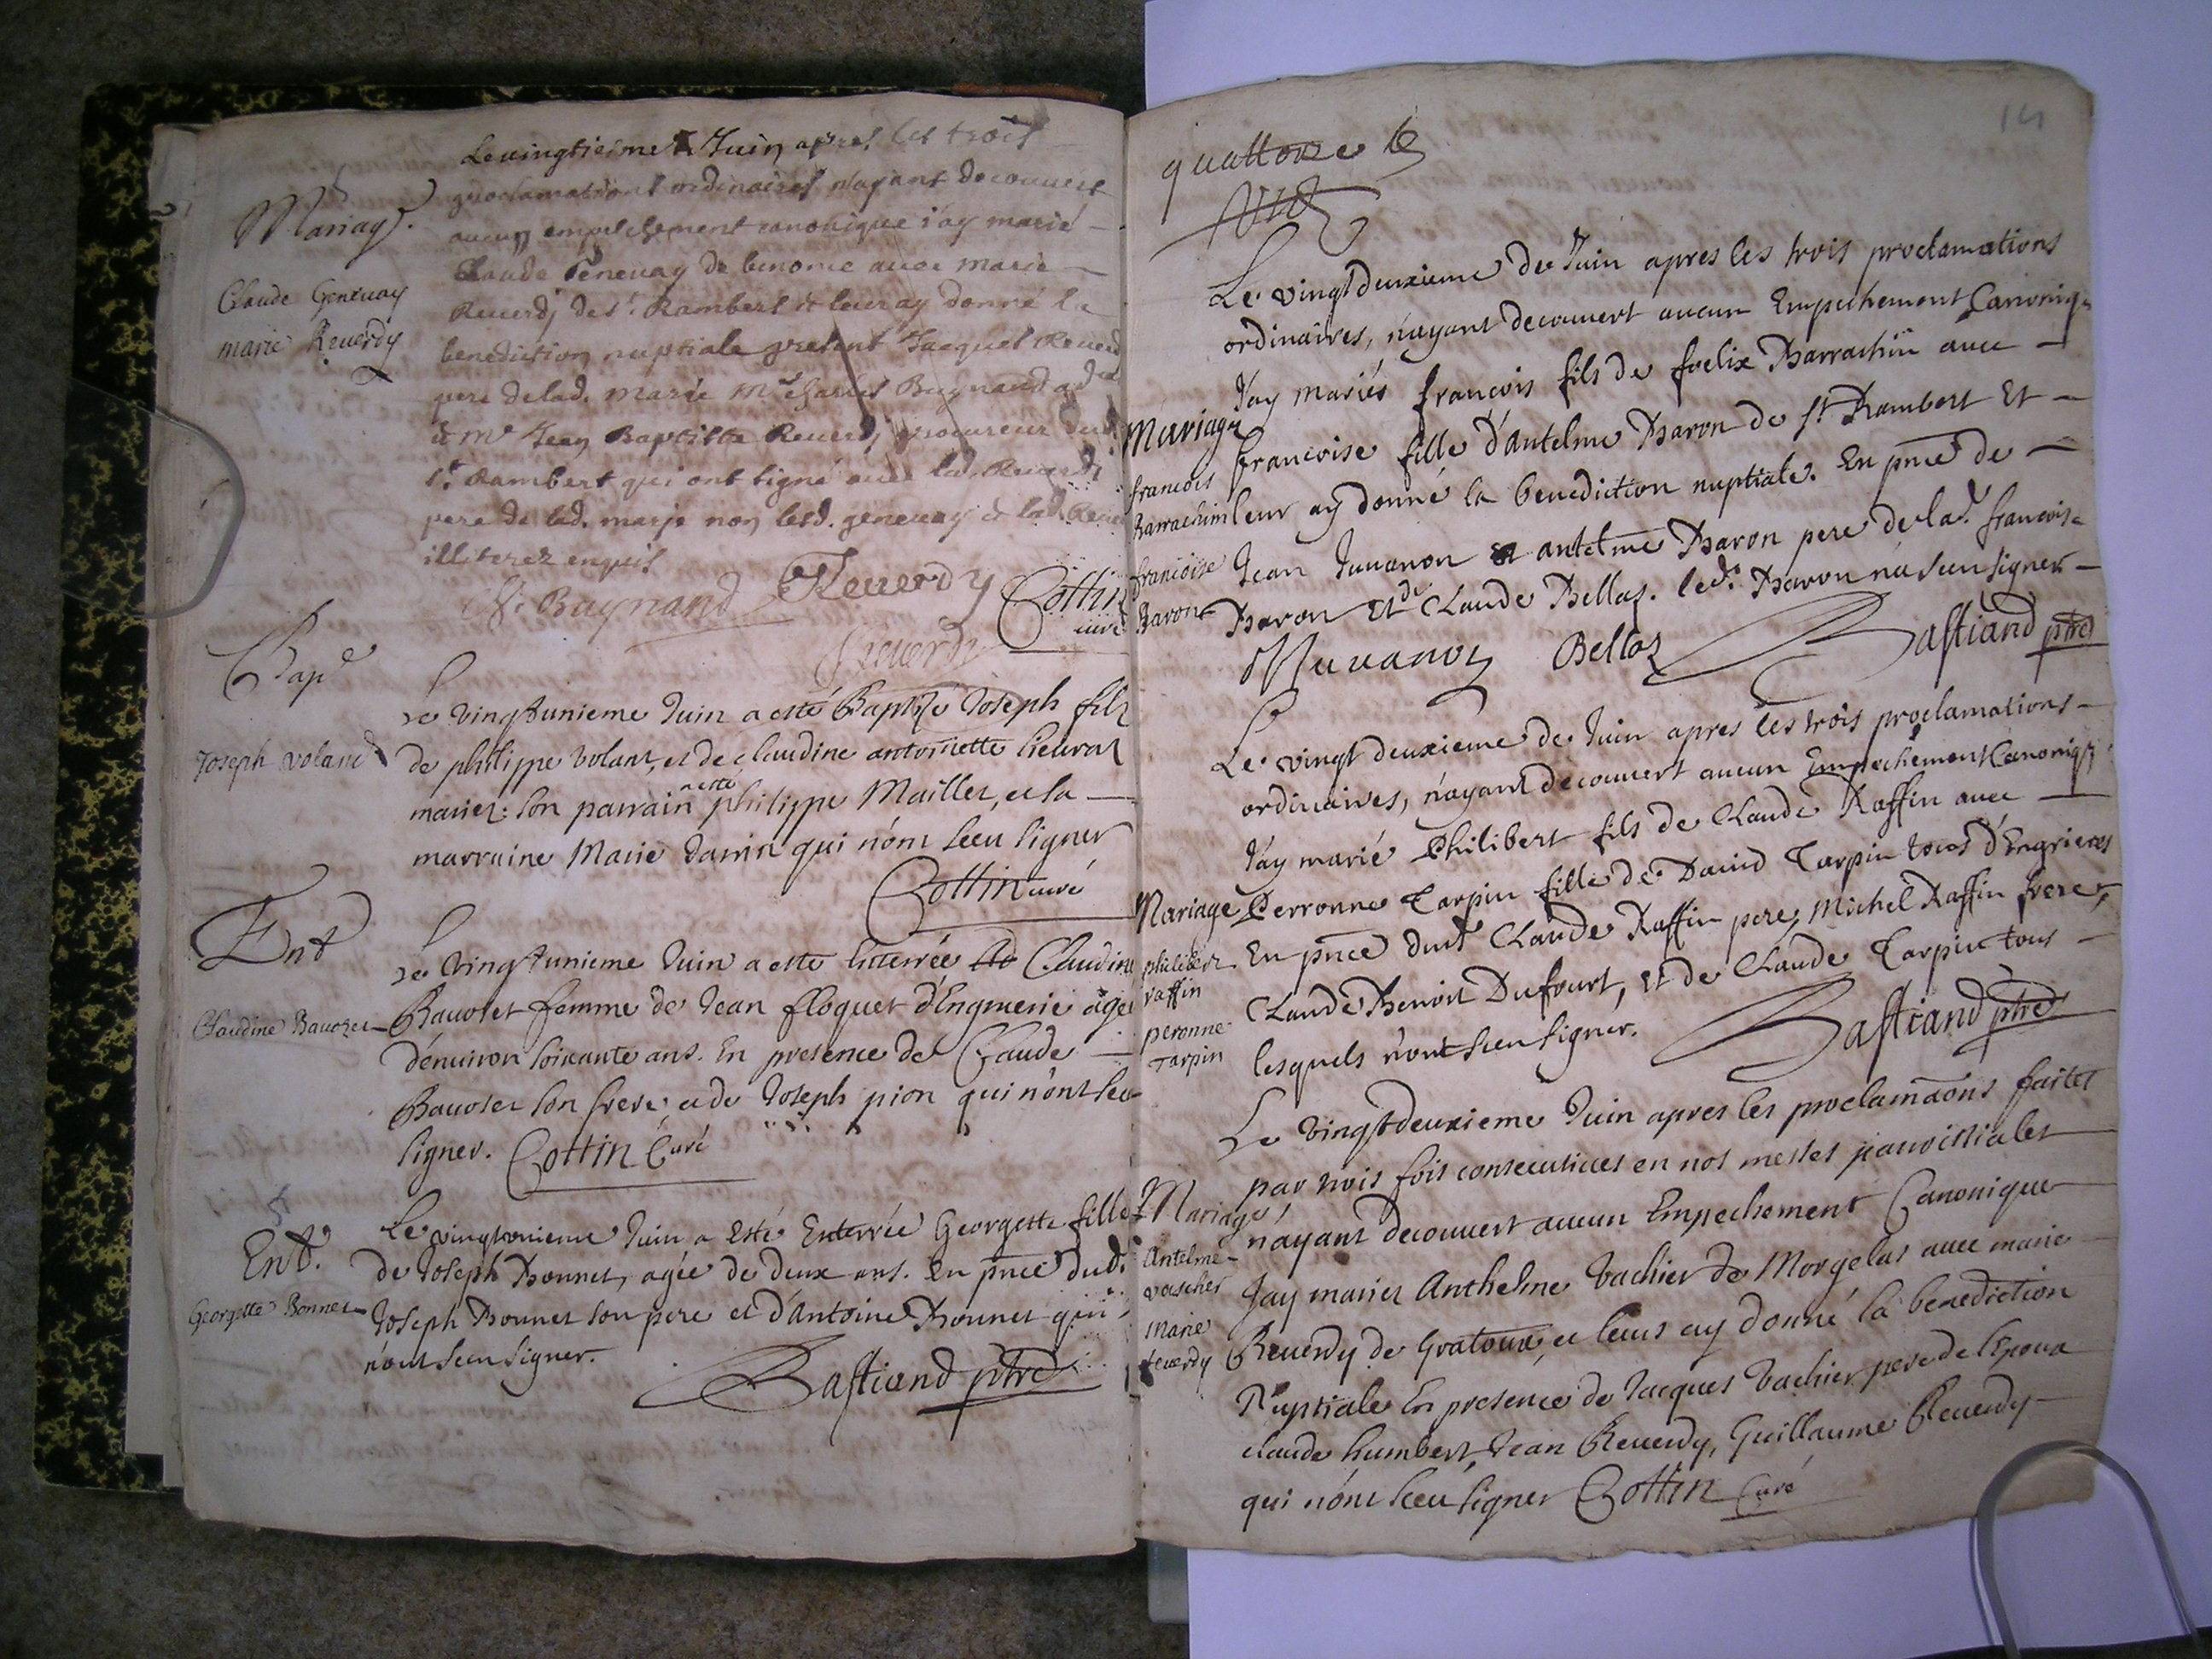 Mariage.
Claude Geneuay
marie Reuerdy
Le uingtiesme Juin apres les trois
proclamations ordinaires n'ayant decouuert
aucun empeschement canonique i'ay marié
Claude Geneuay de auec marie
Reuerdj de st. Rambert & leur ay donné la
benediction nuptiale present Jacques Reuerdj
pere de lad. marie Mre Charles Bugnand
& Mre Jean Baptiste Reuerdj procureur dud.
st. Rambert qui ont signé auec led. Reuerdj
pere de lad. marie non lesd. geneuay & lad. Reuer
illiterez enquis
Bugnand Reuerdy Cottin
curé
Reuerdy
Bap
Joseph voland
Le vingtunieme Juin a esté Baptizé Joseph fils
de philippe volant, et de claudine antoinette lieurat
mariez: son parrain a esté philippe Maillet, et la
marraine Marie Janin qui n'ont sceu signer
Cottin curé
Ent
Claudine Bauozet
Le vingtunieme Juin a esté enterrée Claudine
Bauozet femme de Jean floquet d'Engrierie agee
d'enuiron soixante ans. En presence de Claude
Bauozet son frere et de Joseph pion qui n'ont sceu
signer. Cottin Curé
Ent.
Georgette Bonnet
Le vingtunieme Juin a esté Enterrée Georgette fille
de Joseph Bonnet, agée de deux ans. En pnce dud.
Joseph Bonnet son pere et d'Antoine Bonnet qui
n'ont sceu signer.
Bastiand ptre
14
quattorze
Le vingtdeuxieme de Juin apres les trois proclamations
ordinaires, n'ayant decouuert aucun Empechement Canoniq
J'ay mariés francois fils de foelix Barrachin auec
Mariage
francois
Barrachin
francoise
Baron
francoise fille d'Antelme Baron de st Rambert Et
leur ay donné la benediction nuptiale. En pnce de
Jean Juuanon et antelme Baron pere de lad. francoise
Baron Et de Claude Bellaz. led. Baron n'a sceu signer
Juuanon Bellaz Bastiand ptre
Le vingt deuxieme de Juin apres les trois proclamations
ordinaires, n'ayant decouuert aucun Empechement Canoniq
J'ay marié Philibert fils de Claude Raffin auec
Mariage
philibert
raffin
peronne
Tarpin
Perronne Tarpin fille de Dauid Tarpin tous d'Engrieres
En pnce dud Claude Raffin pere, Michel Raffin frere,
Claude Benoit Dufourt, et de Claude Tarpin tous
lesquels n'ont sceu signer.
Bastiand ptre
Le vingtdeuxieme Juin apres les proclamaons faites
par trois fois consecutiues en nos messes paroissiales
Mariage
Antelme
vascher
Marie
reuerdy
n'ayant decouuert aucun Empechement Canonique
J'ay mariez Anthelme Vachier de Morgelas auec marie
Reuerdy de Gratoux, et leurs ay donné la benediction
Nuptiale En presence de Jacques Vachier pere de l'Epoux
claude humbert, Jean Reuerdy, Guillaume Reuerdy
qui n'ont sceu signer Cottin Curé